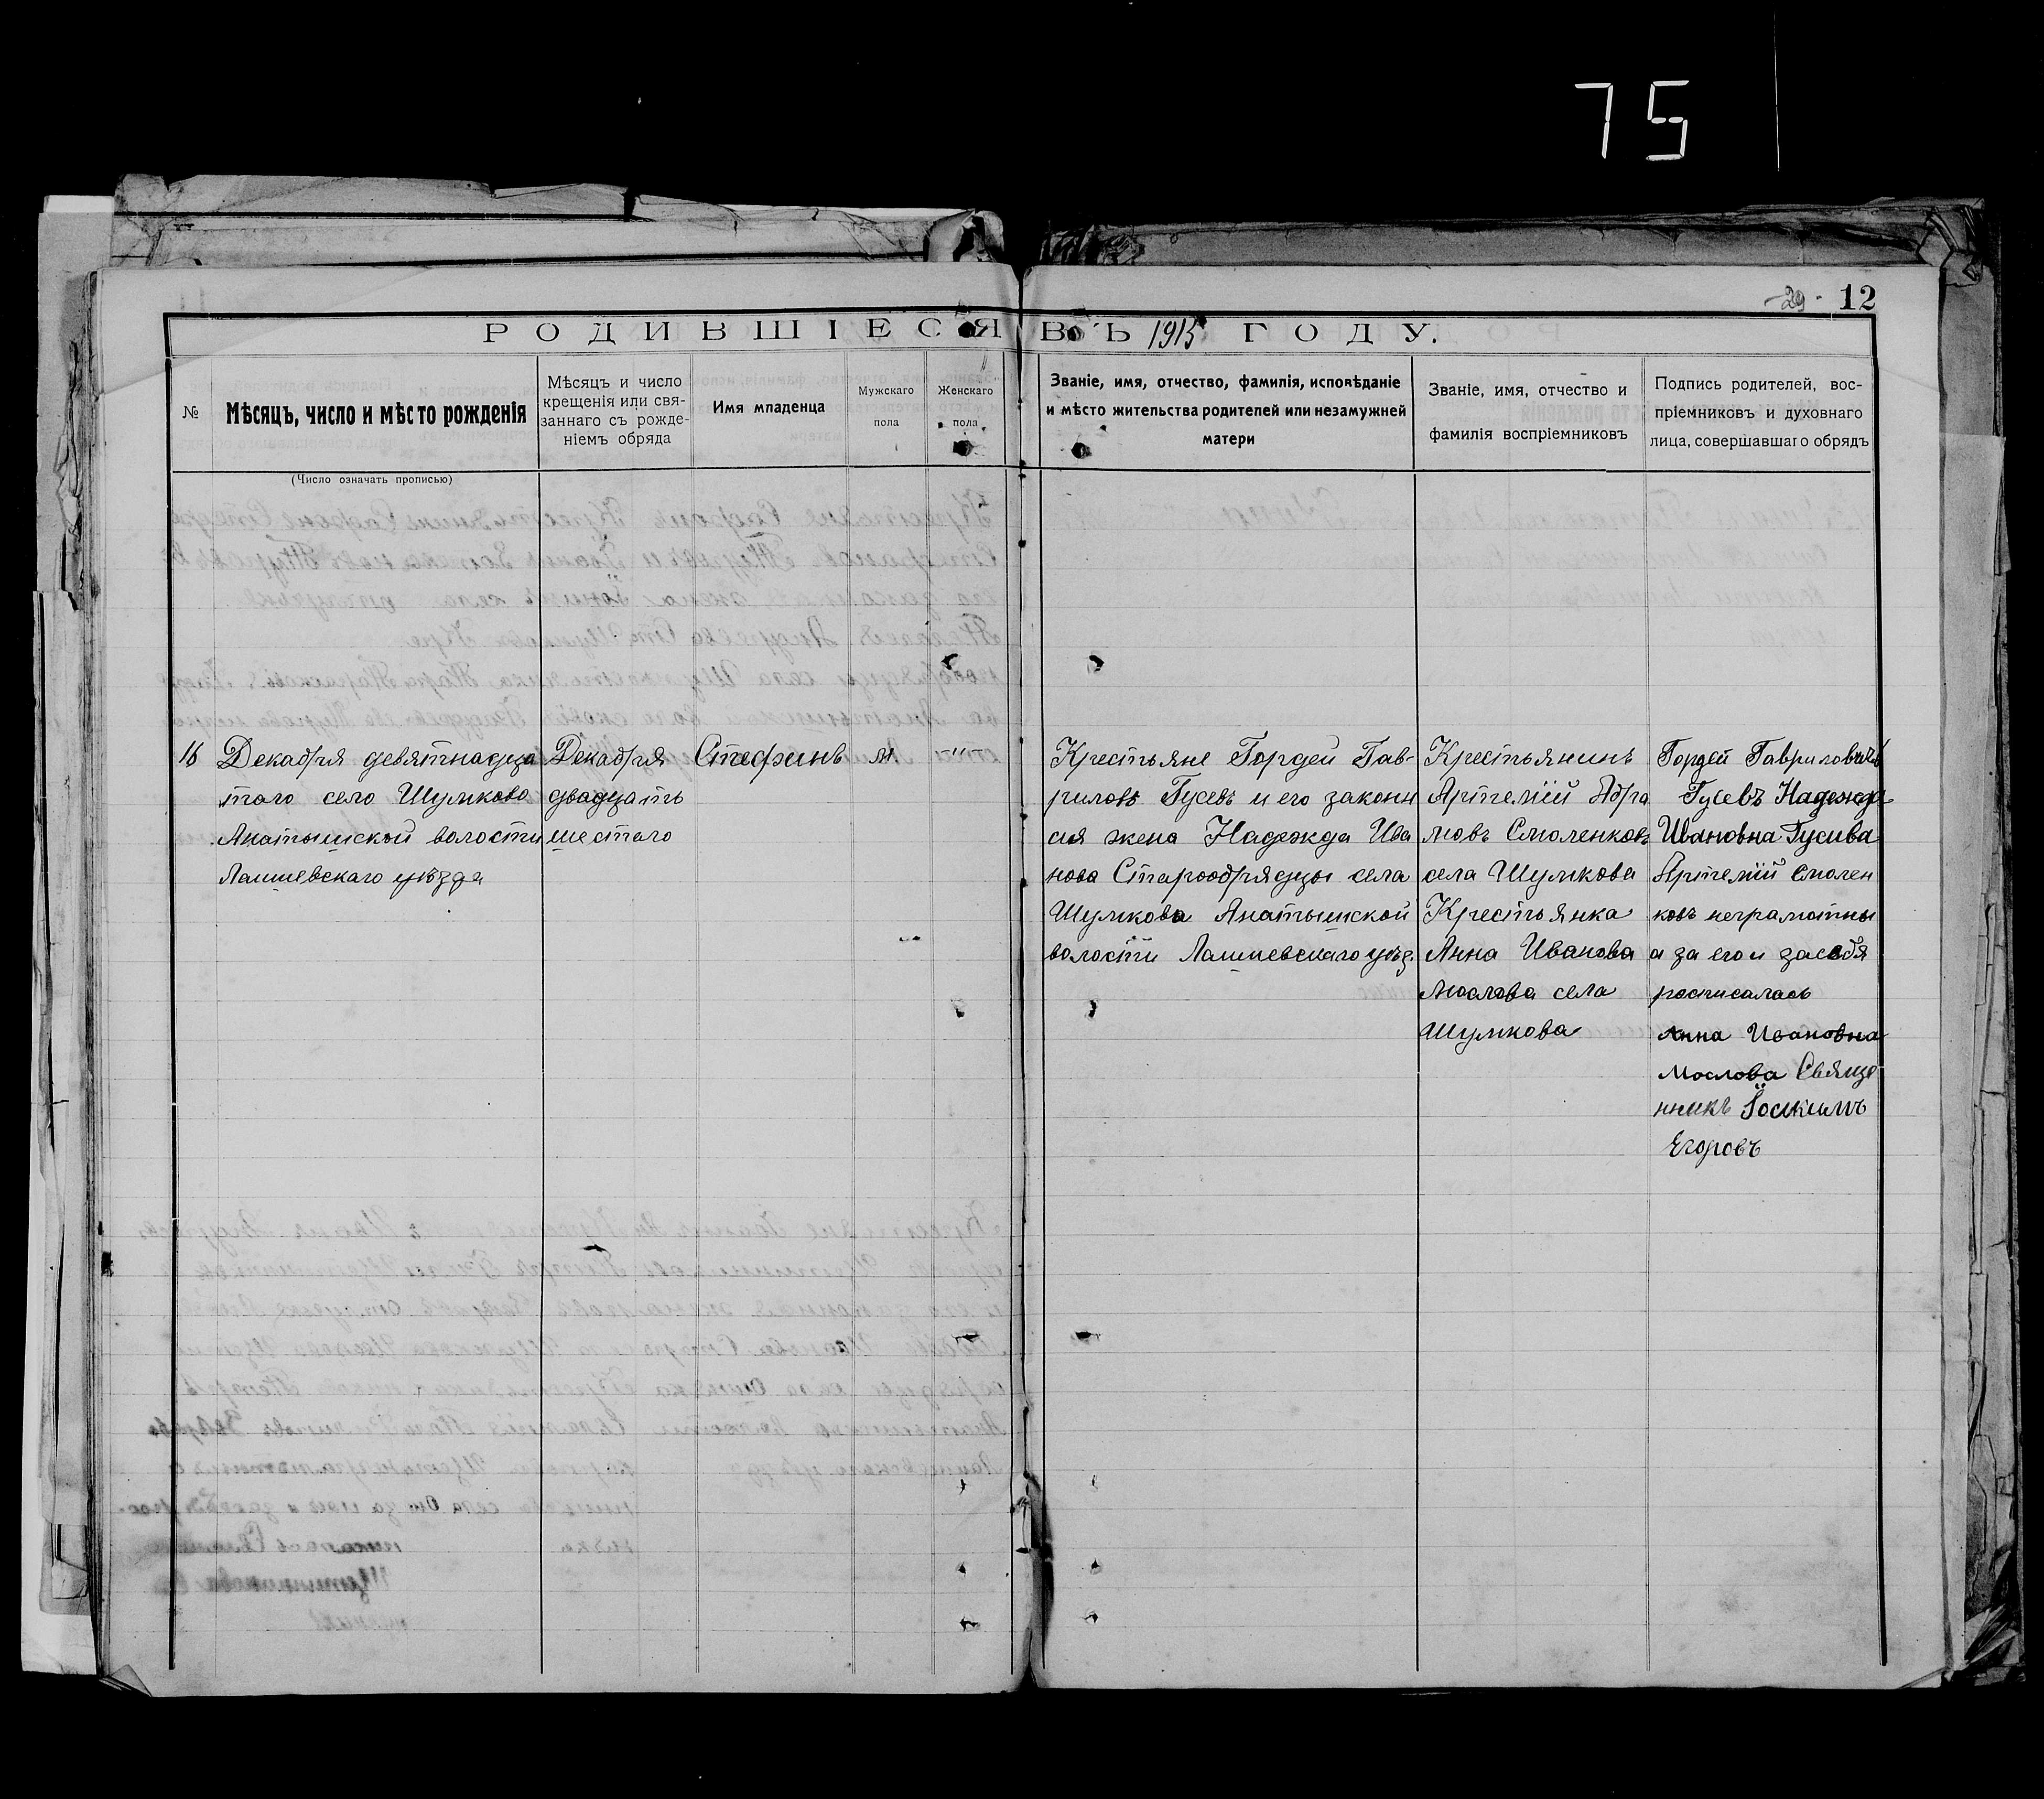 75
29 12
РОДИВШІЕСЯ ВЪ 1915 ГОДУ.
№
Мѣсяцъ, число и мѣсто рожденія
Мѣсяцъ и число
крещенія или свя-
заннаго съ рожде-
ніемъ обряда
Имя младенца
Мужскаго
пола
Женскаго
пола
Званіе, имя, отчество, фамилія, исповѣданіе
и мѣсто жительства родителей или незамужней
матери
Званіе, имя, отчество и
фамилія воспріемниковъ
Подпись родителей, вос-
пріемниковъ и духовнаго
лица, совершавшаго обрядъ
(Число означать прописью)
16
Декабря девятнадца
таго село Шумково
Анатышской волости
Лаишевскаго уѣзда
Декабря
двадцать
шестаго
Стефанъ
м
Крестьяне Гордей Гав-
риловъ Гусевъ и его законн
ая жена Надежда Ива
нова Старообрядцы села
Шумкова Анатышской
волости Лаишевскаго уѣз.
Крестьянинъ
Артемій Абра
мовъ Смоленковъ
села Шумкова
Крестьянка
Анна Иванова
Мослова села
Шумкова
Гордей Гавриловичъ
Гусевъ Надежда
Ивановна Гусива
Артемій Смолен
ковъ неграмотны
а за его и засебя
росписалась
Анна Ивановна
Мослова Свяще
нникъ Іоакимъ
Егоровъ